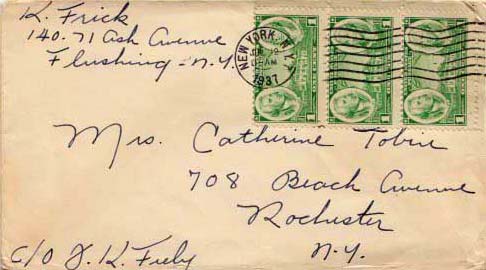 K. Frick
140-71 Ash Avenue
Flushing - N.Y.
NEW YORK, N.Y.
1937
1
1
1
Mrs. Catherine Tobin
708 Beach Avenue
Rochester
N.Y.
c/o J. K.